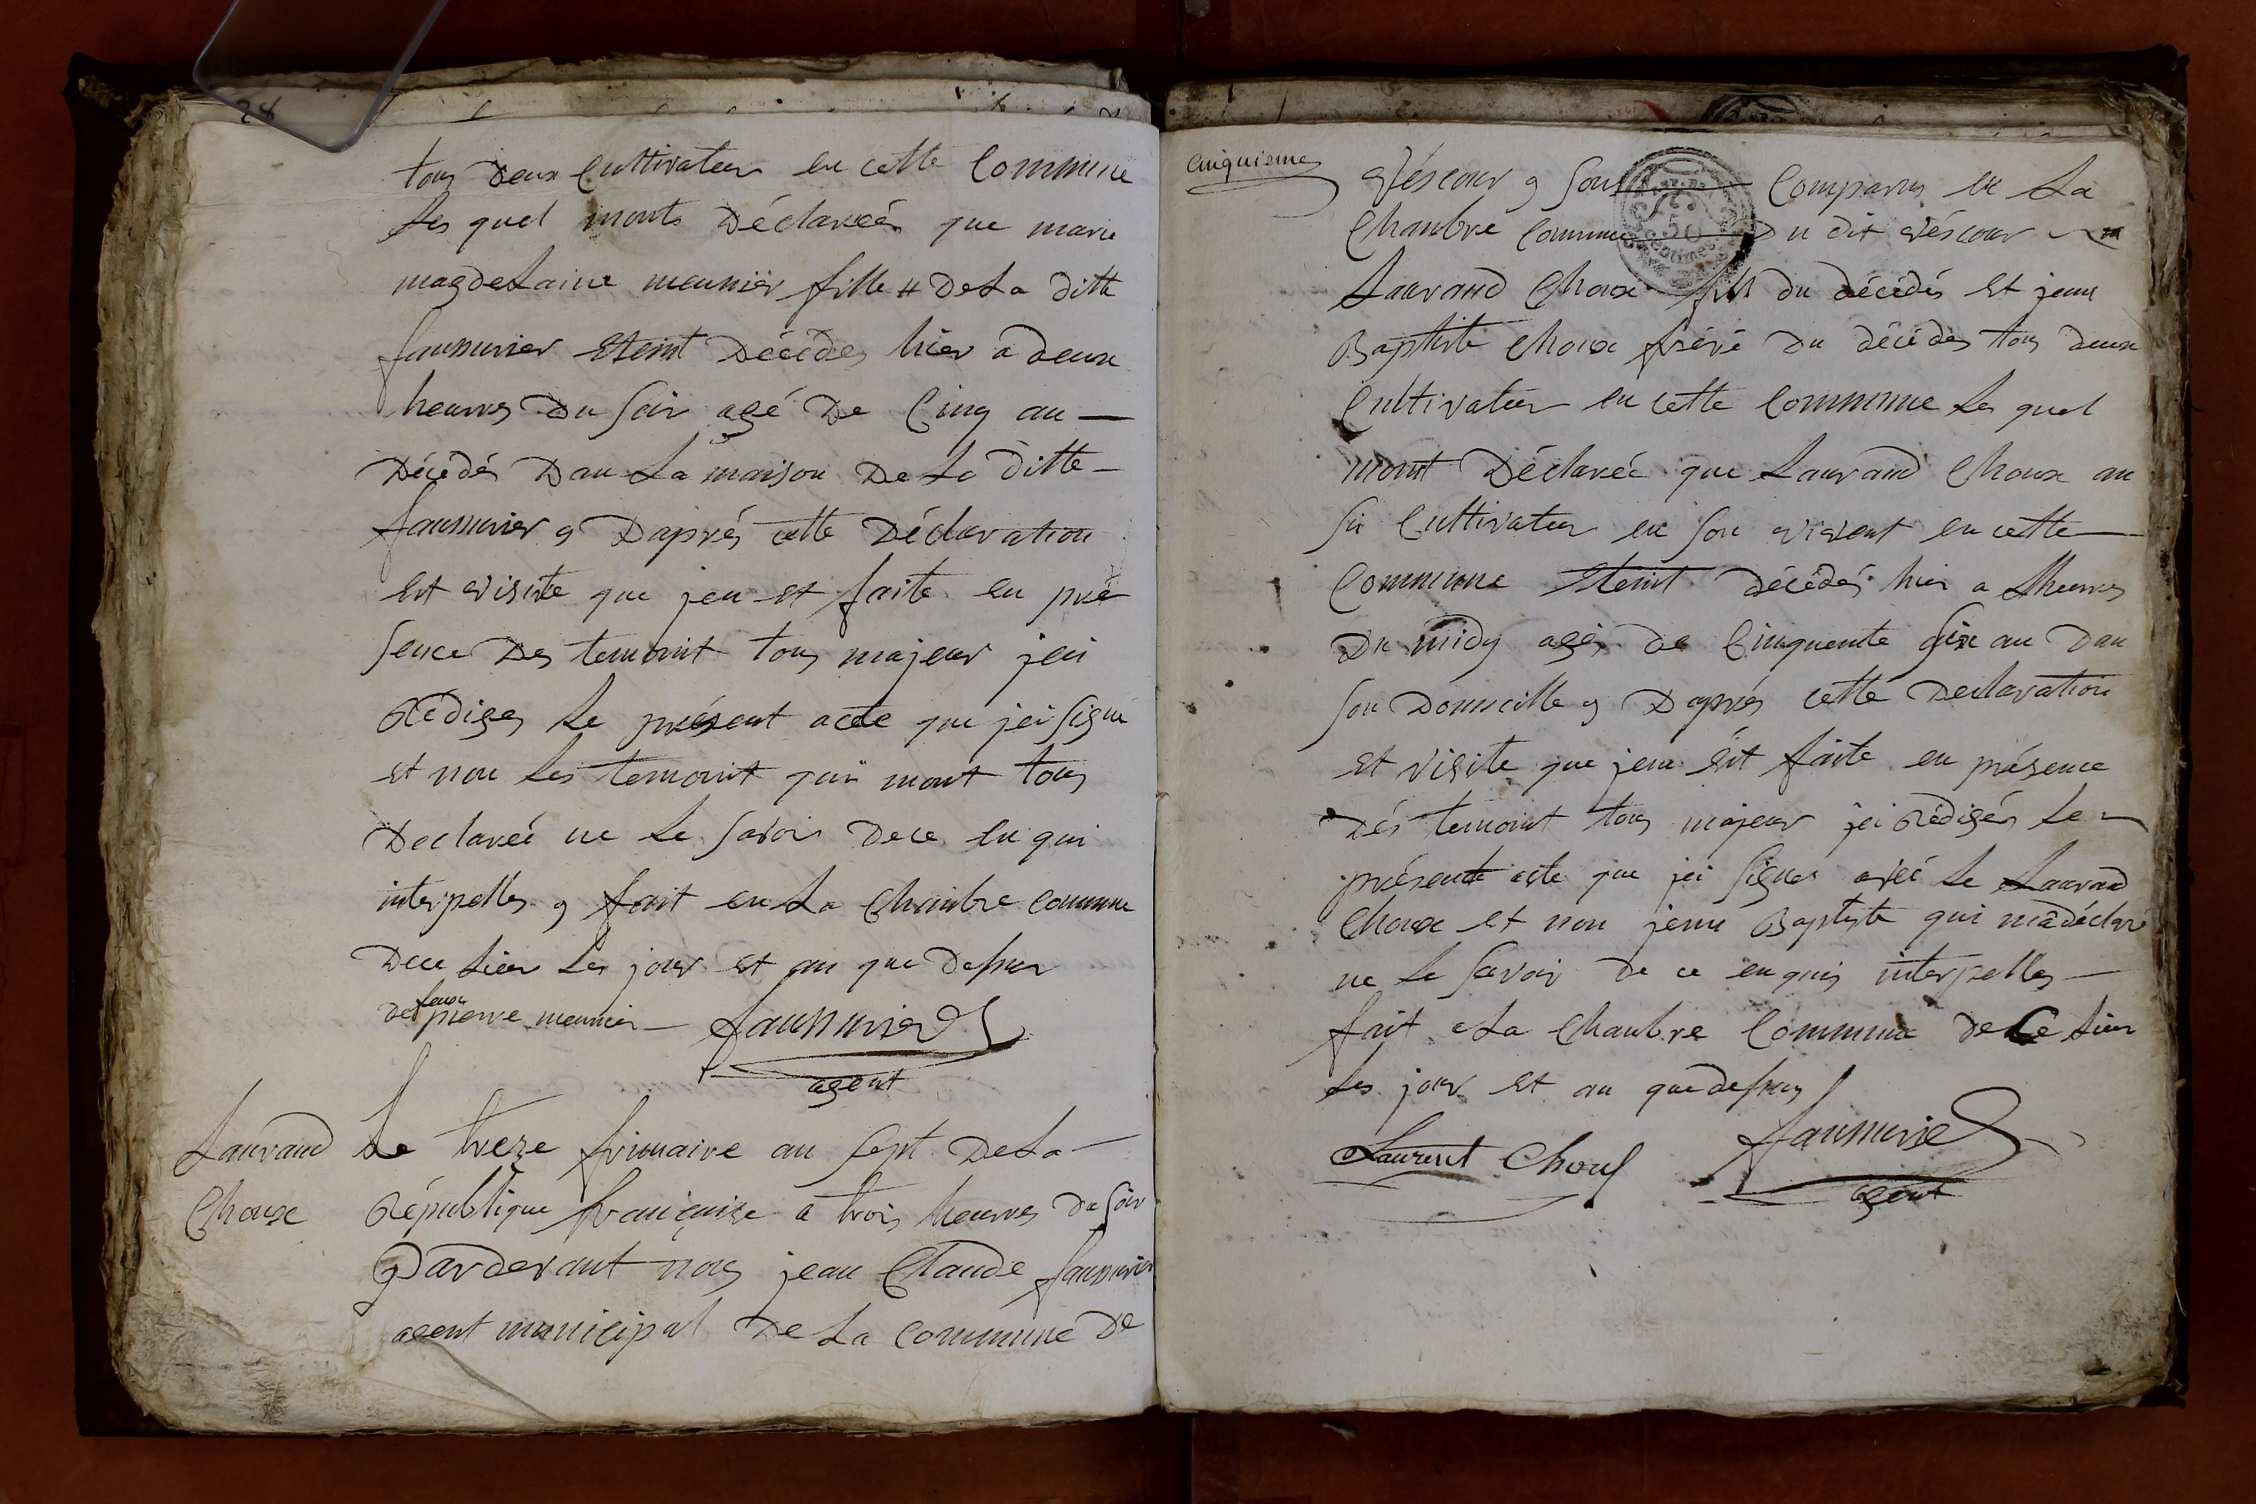 28
tous deux Cultivateur en cette Commune
Les quel monts Déclareés que marie
magdeLaine meunier fille # De La ditte
faumurier Etemt Décédes hier a deux
heurres Du Soir agé De Cinq an —
Décédés Dan La maison De La ditte —
faumurier, Daprés cette Déclaration
Est visite que jeu est faite en pré
Sence Des temoint tous majeur jei
Rédiges Le présent acte que jei Signé
et non Les temoint quii mont tous
Declareé ne Le Savoir Dece en qui
interpelles, fait en La Chambre Commune
Dece Lieu Les jour et an que Dessus
de feux pierre meunier — faumurier
agent
Laurand
Choux
Le treze frimaire an Sept De La —
République françaisse a trois heurres Du Soir
Pardevant nous jean Claude faumurier
agent municipal De La Commune De
Cinquieme
véscour, Sont Comparus en La
Chambre Commune Du dit véscour
50
Centimes
Laurand Choux fils du décédés Et jean
Baptiste Choux fréré Du décédés tous deux
Cultivateur en cette Commune Les quel
mont Déclareé que Laurand Choux au
Si Cultivateur en Son vivent en cette
Commune Etemt décédés hier a heurres
Du midy agés de Cinquente Six an Dan
Son Domicille, Daprés cette Declaration
et visite que jeu éit faite en présence
Dés temoint tous majeur jei Rédigés Le
présente acte que jei Signer avéc Le Laurand
Choux et non jean Baptiste qui mà déclaré
ne Le Savoir De ce en quis interpelles —
fait a La Chambre Commune de Ce Lieu
Les jour et an que dessus
Laurent Chouf faumurier
agent